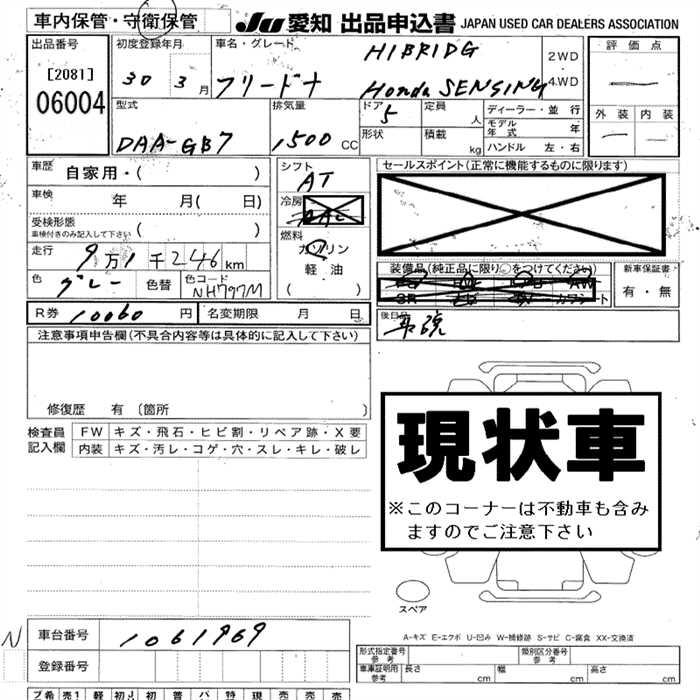 車内保管・守衛保管
JU 愛知 出品申込書 JAPAN USED CAR DEALERS ASSOCIATION
出品番号
[2081]
06004
初度登録年月
30 3月
車名・グレード
フリード+
HIBRIDG
Honda SENSING
2WD
4WD
評価点
外装 内装
型式
DAA-GB7
排気量
1500 CC
ドア 5
形状
定員 人
積載 kg
ディーラー・並行
モデル年式 年
ハンドル 左・右
車歴 自家用・( )
車検 年 月( 日)
受検形態
車検付きのみ記入して下さい ( )
走行 9万1千246km
色 グレー 色替 色コード NH797M
シフト AT
冷房
燃料
ガソリン
軽油
( )
セールスポイント(正常に機能するものに限ります)
装備品(純正品に限り○をつけてください)
新車保証書
有・無
R券 10060 円 名変期限 月 日
後日品
注意事項申告欄(不具合内容等は具体的に記入して下さい)
修復歴 有 〔箇所 〕
検査員記入欄
FW キズ・飛石・ヒビ割・リペア跡・X要
内装 キズ・汚レ・コゲ・穴・スレ・キレ・破レ
現状車
※このコーナーは不動車も含み
ますのでご注意下さい
スペア
A-キズ E-エクボ U-凹み W-補修跡 S-サビ C-腐食 XX-交換済
N 車台番号 1061969
登録番号
形式指定番号 参考
類別区分番号 参考
車庫証明用 参考 長さ cm 幅 cm 高さ cm